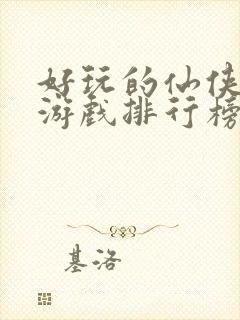 好玩的仙侠
游戏排行榜
基洛